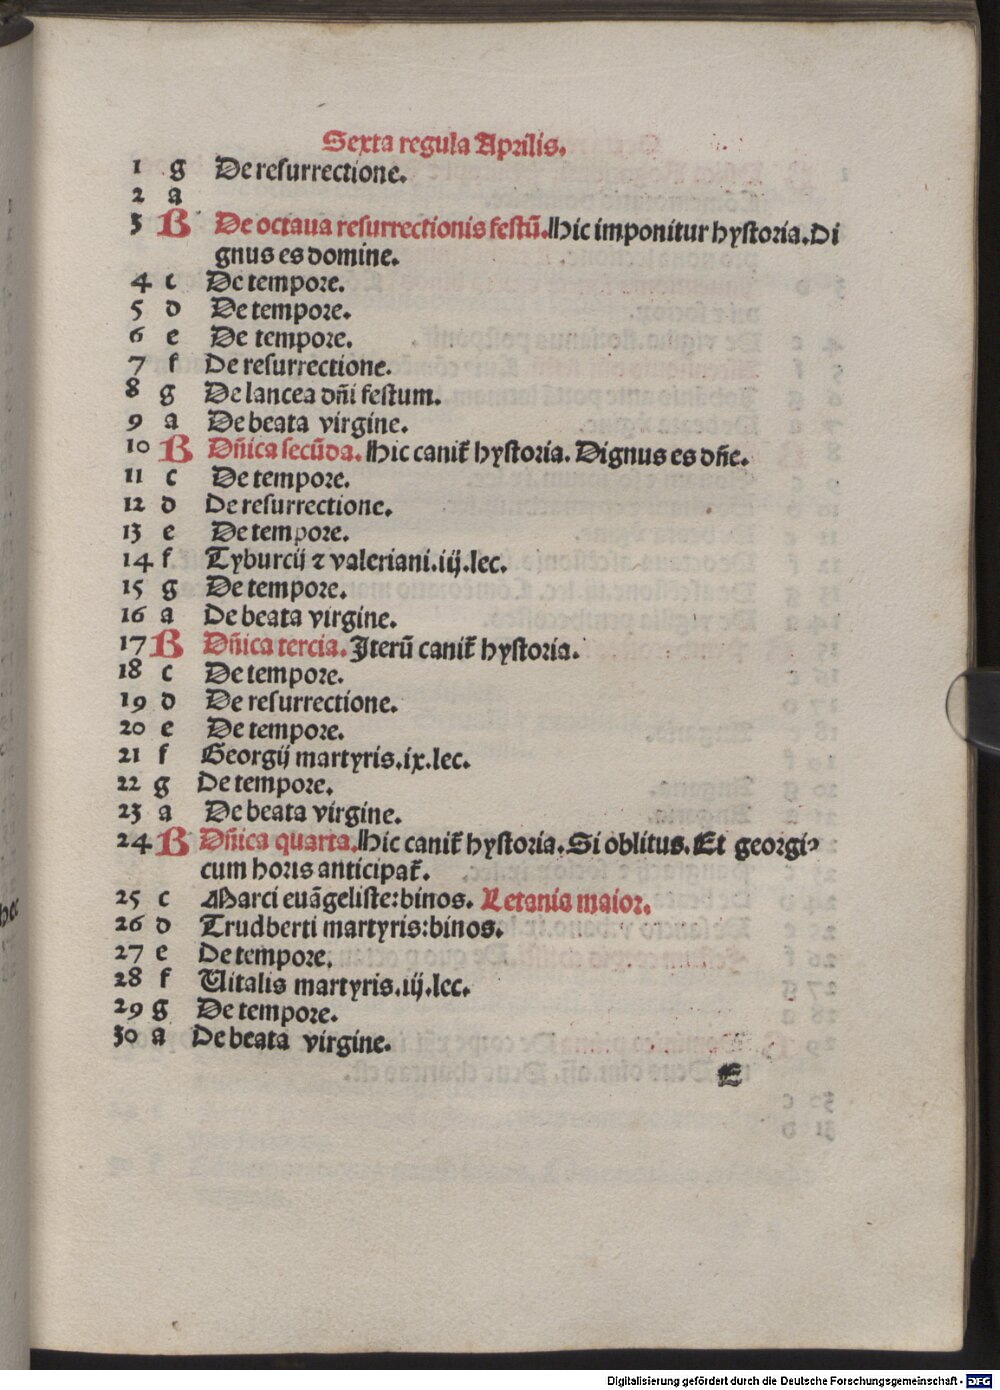 Sexta regula Aprilis.
1 g De resurrectione.
2 a
3 B De octaua resurrectionis festū. Hic imponitur hystoria. Di
gnus es domine.
4 c De tempore.
5 d De tempore.
6 e De tempore.
7 f De resurrectione.
8 g De lancea dn̄i festum.
9 a De beata virgine.
10 B Dn̄ica secūda. Hic canit᷑ hystoria. Dignus es dn̄e.
11 c De tempore.
12 d De resurrectione.
13 e De tempore.
14 f Tyburcij ⁊ valeriani. iij. lec.
15 g De tempore.
16 a De beata virgine.
17 B Dn̄ica tercia. Iterū canit᷑ hystoria.
18 c De tempore.
19 d De resurrectione.
20 e De tempore.
21 f Georgij martyris. ix. lec.
22 g De tempore.
23 a De beata virgine.
24 B Dn̄ica quarta. Hic canit᷑ hystoria. Si oblitus. Et georgi⸗
cum horis anticipat᷑.
25 c Marci euāgeliste: binos. Letania maior.
26 d Trudberti martyris: binos.
27 e De tempore.
28 f Uitalis martyris. iij. lec.
29 g De tempore.
30 a De beata virgine.
E
Digitalisierung gefördert durch die Deutsche Forschungsgemeinschaft - DFG